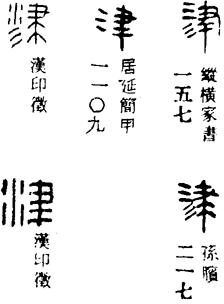 津
縱橫家書
一五七
津
居延簡甲
一一〇九
津
漢印徵
津
孫臏
二一七
津
漢印徵